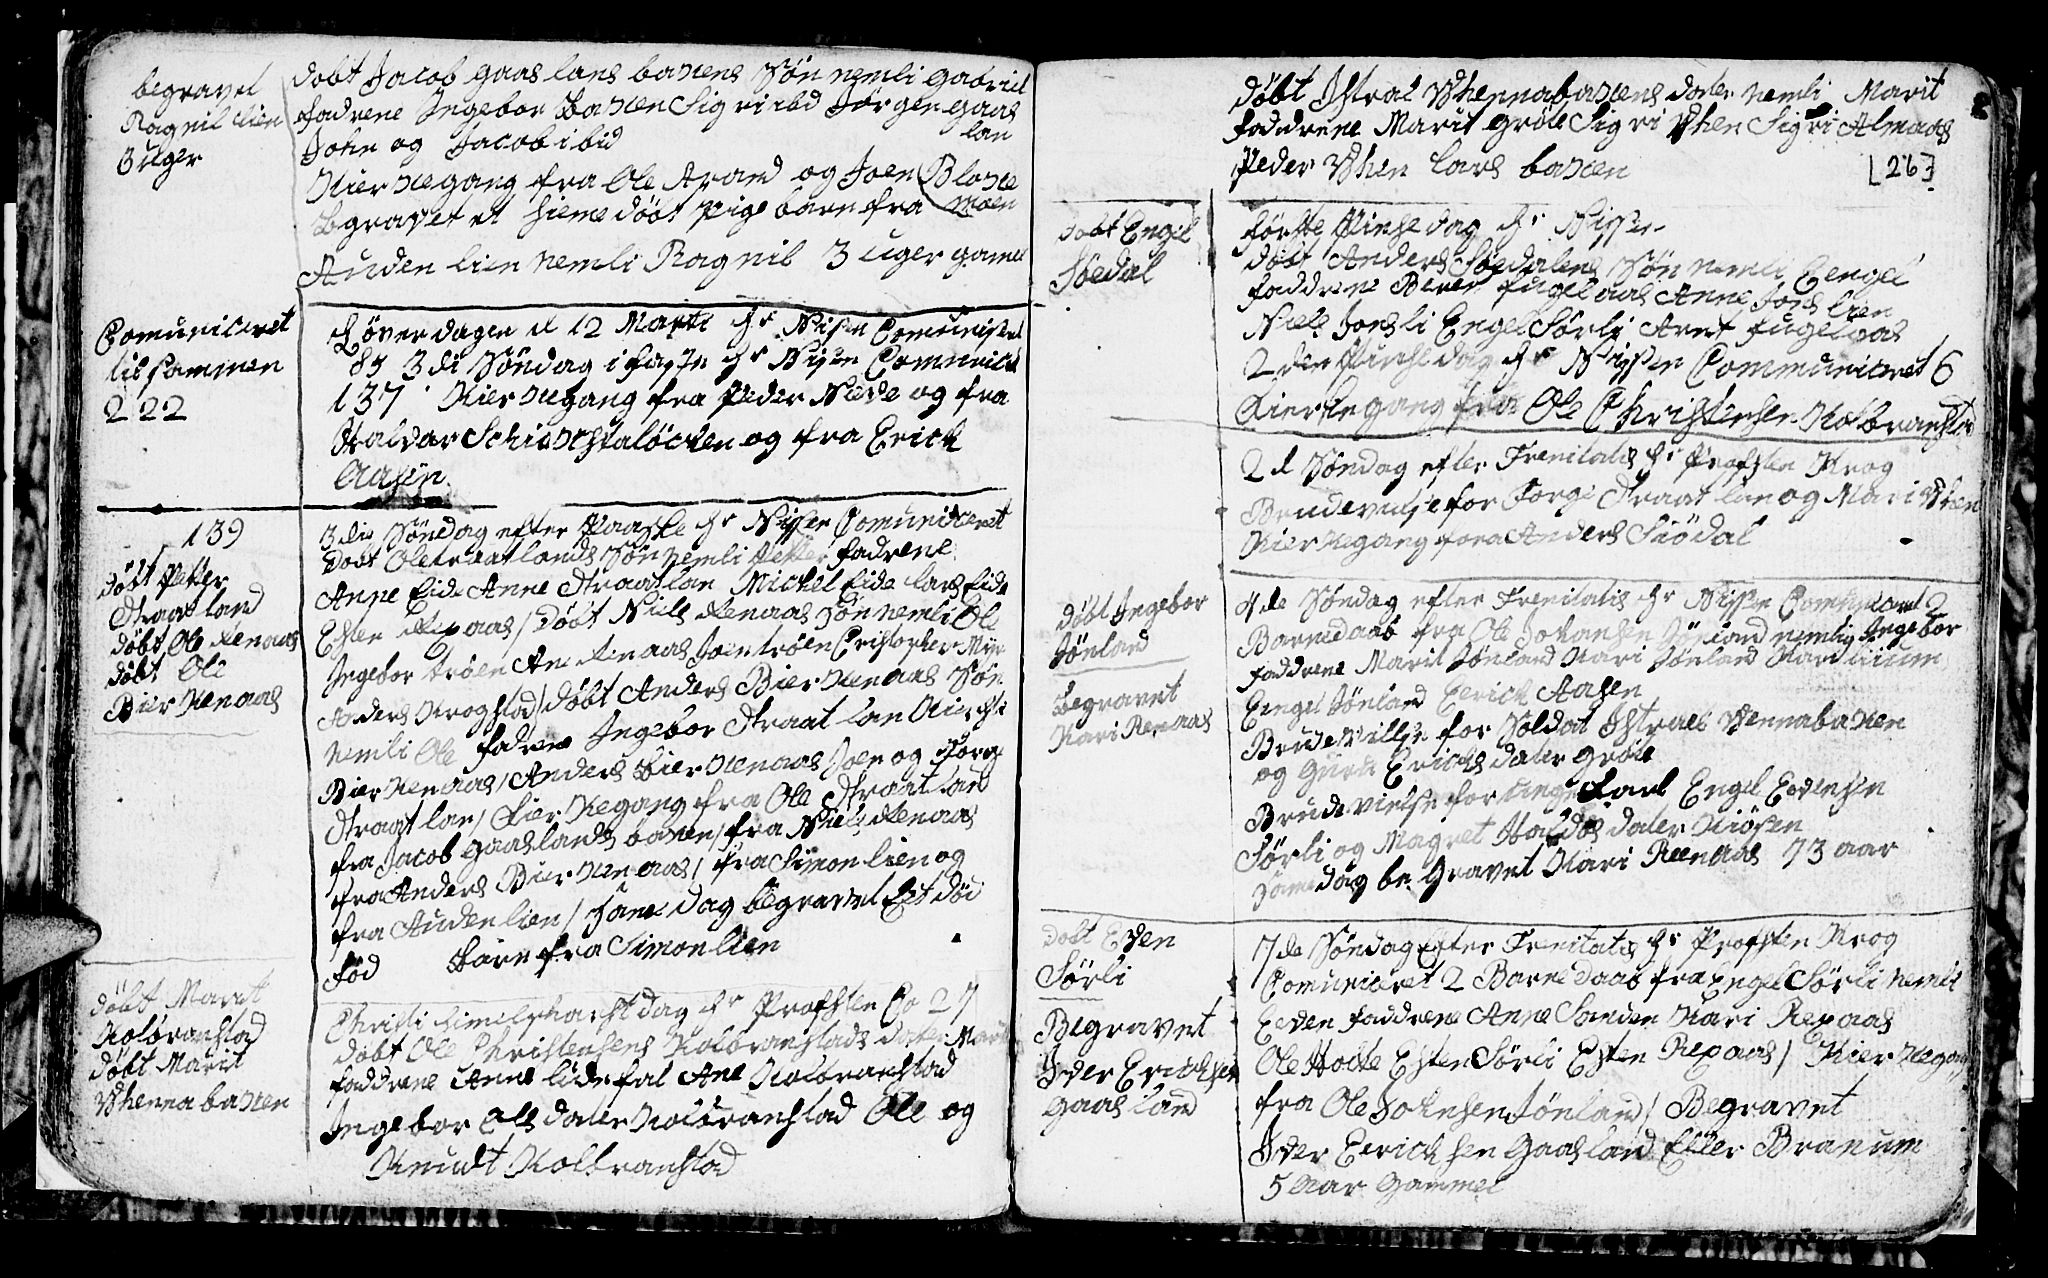 begravet
Ragnil lien
3 uger
döbt Jacob gaas lans bachens Sön nemli gabriel
fadrene Ingebor Bachen Sigri ibd Jörgen gaas
lan
John og Jacob ibid
Kierkegang fra Ole Aʒand og Joen Bloche
moen
Begravet et hieme döbt Pige barn fra
Auden lien nemli Ragnil 3 uger gamel
Comuniceret
til sammen
222
Löverdagen d 12 Marti hr Nissen Comuniseret
85 3di Söndag i faste hr Nissen Comunicert
137 Kierkegang fra Peder Neve og fra
Haldar Schiechstalöcken og fra Erick
Aasen
139
döbt Petter
Straatland
döbt Ole Renaas
döbt Ole
Bierkenaas
3die Söndag efter Paaske hr Nissen Comuniceret
Döbt Ole traatlands Sön nemli Petter fadrene
Anne Eide Anne Straatlan Mickel Eide lars Eide
Esten Repaas / Döbt Niels Renaas Sön nemli Ole
Ingebor tröen Ane Renaas Joen tröen Cristopher Myr
Anders Krogstad / döbt Anders Bierkenaas Sön
nemli Ole fadrene Ingebor Straatlan Kirsti
Bierkenaas / Anders Bierkenaas Joen og Torge
Straatlan / Kierkegang fra Ole Straatland
fra Jacob Gaaslands bachen / fra Niels Renaas
fra Anders Bierkenaas / fra Simon lien og
fra Auden lien / same dag begravet Eit död
föd Barn fra Simon lien
döbt Marit
Kolbranstad
döbt Marit
Vhennabachen
Christi himelsfarts dag hr Profsten Co 27
döbt Ole Christensens Kolbranstads dater Marit
faddrene Anne lidefal Ane Kolbranstad
Ingebor Ols dater Kolbranstad Ole og
Knudt Kolbranstad
döbt Jstral Vhennabachens dater nemli Marit
faddrene Marit gröte Sigri Vhen Sigri Almaas
Peder Vhen lars bachen
[26]
döbt Engel
Söedal
förste Pinse dag hr Nissen
döbt Anders Söedalens Sön nemli Eengel
faddrene Beret fugelaas Anne Jons lien
Niels Jonsli Engel Sörli Arnt fugelaas
2den Pinse dag hr Nissen Communiceret 6
Kierkegang fra Ole Christensen Kolbranstad
2d Söndag efter Trenitatis hr Profsten Krog
Brudevielse for Torge Straatlan og Mari Vhen
Kierkegang fra Anders Siödal
döbt Ingebor
Jönland
Begravet
Kari Renaas
4de Söndag efter Trenitatis hr Nissen Comuniceret 2
Barnedaab fra Ole Johansen Jönland nemlig Ingebor
faddrene Marit Jönland Kari Jönland Kari lium
Eengel Jönland Eerick Aasen
Brudevillse for Soldat Jstrael Vhennabachen
og Guru Ericks dater gröte
Brudevielse for unge Karl Engel Eedensen
Sörli og Magret Haldos dater Kiösen
Same dag be Gravet Kari Reenaas 73 aar
Döbt Eden
Sörli
Begravet
Jver Erichsen
Gaasland
7de Söndag Efter Trenitatis hr Profsten Krog
Comuniceret 2 Barnedaab fra Engel Sörli nemli
Eeden faddrene Anne Sanden Kari Repaas
Ole Holte Esten Sörli Esten Repaas / Kierkegang
fra Ole Johnsen Jönland / Begravet
Jver Eerichsen Gaasland Eller Branum
5 Aar Gammel